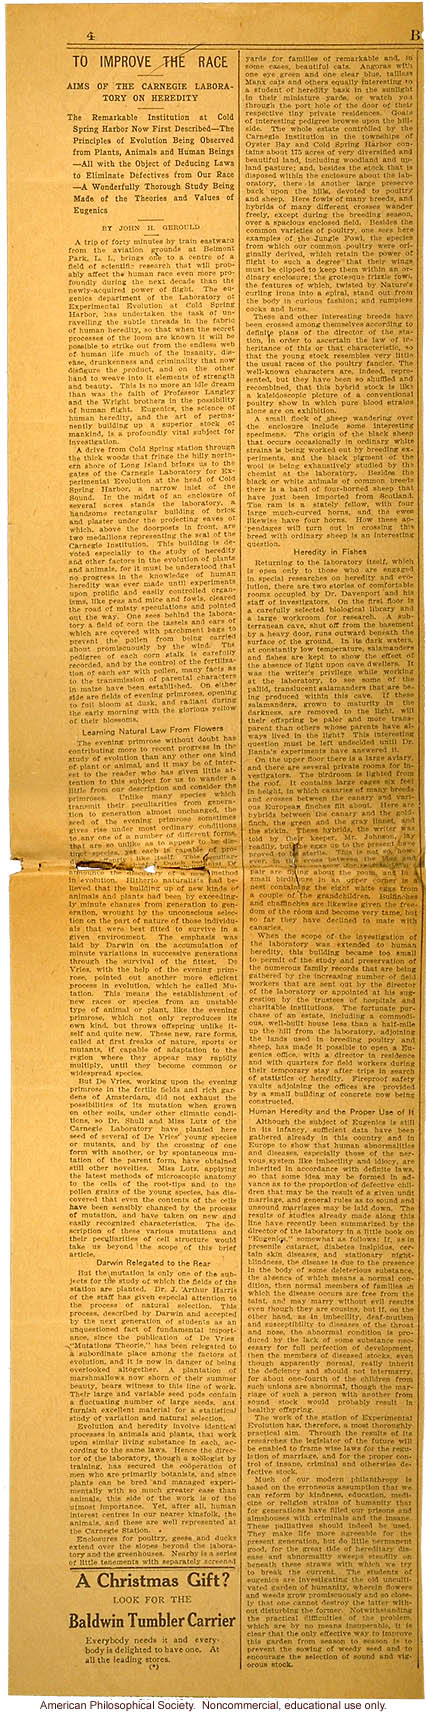 4
B
TO IMPROVE THE RACE
AIMS OF THE CARNEGIE LABORA-
TORY ON HEREDITY
The Remarkable Institution at Cold
Spring Harbor Now First Described—The
Principles of Evolution Being Observed
from Plants, Animals and Human Beings
—All with the Object of Deducing Laws
to Eliminate Defectives from Our Race
—A Wonderfully Thorough Study Being
Made of the Theories and Values of
Eugenics
BY JOHN H. GEROULD
A trip of forty minutes by train eastward
from the aviation grounds at Belmont
Park, L. I., brings one to a centre of a
field of scientific research that will prob-
ably affect the human race even more pro-
foundly during the next decade than the
newly-acquired power of flight. The eu-
genics department of the Laboratory of
Experimental Evolution at Cold Spring
Harbor, has undertaken the task of un-
ravelling the subtle threads in the fabric
of human heredity, so that when the secret
processes of the loom are known it will be
possible to strike out from the endless web
of human life much of the insanity, dis-
ease, drunkenness and criminality that now
disfigure the product, and on the other
hand to weave into it elements of strength
and beauty. This is no more an idle dream
than was the faith of Professor Langley
and the Wright brothers in the possibility
of human flight. Eugenics, the science of
human heredity, and the art of perma-
nently building up a superior stock of
mankind, is a profoundly vital subject for
investigation.
A drive from Cold Spring station through
the thick woods that fringe the hilly north-
ern shore of Long Island brings us to the
gates of the Carnegie Laboratory for Ex-
perimental Evolution at the head of Cold
Spring Harbor, a narrow inlet of the
Sound. In the midst of an enclosure of
several acres stands the laboratory, a
handsome rectangular building of brick
and plaster under the projecting eaves of
which, above the doorsteps in front, are
two medallions representing the seal of the
Carnegie Institution. This building is de-
voted especially to the study of heredity
and other factors in the evolution of plants
and animals, for it must be understood that
no progress in the knowledge of human
heredity was ever made until experiments
upon prolific and easily controlled organ-
isms, like peas and mice and fowls, cleared
the road of misty speculations and pointed
out the way. One sees behind the labora-
tory a field of corn the tassels and ears of
which are covered with parchment bags to
prevent the pollen from being carried
about promiscuously by the wind. The
pedigree of each corn stalk is carefully
recorded, and by the control of the fertiliza-
tion of each ear with pollen, many facts as
to the transmission of parental characters
in maize have been established. On either
side are fields of evening primroses, opening
to full bloom at dusk, and radiant during
the early morning with the glorious yellow
of their blossoms.
Learning Natural Law From Flowers
The evening primrose without doubt has
contributing more to recent progress in the
study of evolution than any other one kind
of plant or animal, and it may be of inter-
est to the reader who has given little at-
tention to this subject for us to wander a
little from our description and consider the
primroses. Unlike many species which
transmit their peculiarities from genera-
tion to generation almost unchanged, the
seed of the evening primrose sometimes
gives rise under most ordinary conditions
to any one of a number of different forms,
that are so unlike as to appear to be dis-
tinct species, yet each is capable of pro-
in evolution. Hitherto naturalists had be-
lieved that the building up of new kinds of
animals and plants had been by exceeding-
ly minute changes from generation to gen-
eration, wrought by the unconscious selec-
tion on the part of nature of those individu-
als that were best fitted to survive in a
given environment. The emphasis was
laid by Darwin on the accumulation of
minute variations in successive generations
through the survival of the fittest. De
Vries, with the help of the evening prim-
rose, pointed out another more efficient
process in evolution, which he called Mu-
tation. This means the establishment of
new races or species from an unstable
type of animal or plant, like the evening
primrose, which not only reproduces its
own kind, but throws offspring unlike it-
self and quite new. These new, rare forms,
called at first freaks of nature, sports or
mutants, if capable of adaptation to the
region where they appear may rapidly
multiply, until they become common or
widespread species.
But De Vries, working upon the evening
primrose in the fertile fields and rich gar-
dens of Amsterdam, did not exhaust the
possibilities of its mutation when grown
on other soils, under other climatic condi-
tions, so Dr. Shull and Miss Lutz of the
Carnegie Laboratory have planted here
seed of several of De Vries' young species
or mutants, and by the crossing of one
form with another, or by spontaneous mu-
tation of the parent form, have obtained
still other novelties. Miss Lutz, applying
the latest methods of microscopic anatomy
to the cells of the root-tips and to the
pollen grains of the young species, has dis-
covered that even the contents of the cells
have been sensibly changed by the process
of mutation, and have taken on new and
easily recognized characteristics. The de-
scription of these various mutations and
their peculiarities of cell structure would
take us beyond the scope of this brief
article.
Darwin Relegated to the Rear
But the mutation is only one of the sub-
jects for the study of which the fields of the
station are planted. Dr. J. Arthur Harris
of the staff has given especial attention to
the process of natural selection. This
process, described by Darwin and accepted
by the next generation of students as an
unquestioned fact of fundamental import-
ance, since the publication of De Vries
"Mutations Theorie," has been relegated to
a subordinate place among the factors of
evolution, and it is now in danger of being
overlooked altogether. A plantation of
marshmallows now shorn of their summer
beauty, bears witness to this line of work.
Their large and variable seed pods contain
a fluctuating number of large seeds, and
furnish excellent material for a statistical
study of variation and natural selection.
Evolution and heredity involve identical
processes in animals and plants, that work
upon similar living substance in each, ac-
cording to the same laws. Hence the direc-
tor of the laboratory, though a zoölogist by
training, has secured the coöperation of
men who are primarily botanists, and since
plants can be bred and managed experi-
mentally with so much greater ease than
animals, this side of the work is of the
utmost importance. Yet, after all, human
interest centres in our nearer kinsfolk, the
animals, and these are well represented at
the Carnegie Station.
Enclosures for poultry, geese and ducks
extend over the slopes beyond the labora-
tory and the greenhouses. Nearby is a series
of little tenements with separately screened
A Christmas Gift?
LOOK FOR THE
Baldwin Tumbler Carrier
Everybody needs it and every-
body is delighted to have one. At
all the leading stores.
(*)
yards for families of remarkable and, in
some cases, beautiful cats. Angoras with
one eye green and one clear blue, tailless
Manx cats and others equally interesting to
a student of heredity bask in the sunlight
in their miniature yards, or watch you
through the port hole of the door of their
respective tiny private residences. Goats
of interesting pedigree browse upon the hill-
side. The whole estate controlled by the
Carnegie Institution in the townships of
Oyster Bay and Cold Spring Harbor con-
tains about 175 acres of very diversified and
beautiful land, including woodland and up-
land pasture; and, besides the stock that is
disposed within the enclosure about the lab-
oratory, there is another large preserve
back upon the hills, devoted to poultry
and sheep. Here fowls of many breeds, and
hybrids of many different crosses wander
freely, except during the breeding season,
over a spacious enclosed field. Besides the
common varieties of poultry, one sees here
examples of the Jungle Fowl, the species
from which our common poultry were ori-
ginally derived, which retain the power of
flight to such a degree that their wings
must be clipped to keep them within an or-
dinary enclosure; the grotesque frizzle fowl,
the features of which, twisted by Nature's
curling irons into a spiral, stand out from
the body in curious fashion; and rumpless
cocks and hens.
These and other interesting breeds have
been crossed among themselves according to
definite plans of the director of the sta-
tion, in order to ascertain the law of in-
heritance of this or that characteristic, so
that the young stock resembles very little
the usual races of the poultry fancier. The
well-known characters are, indeed, repre-
sented, but they have been so shuffled and
recombined, that this hybrid stock is like
a kaleidoscopic picture of a conventional
poultry show in which pure blood strains
alone are on exhibition.
A small flock of sheep wandering over
the enclosure include some interesting
specimens. The origin of the black sheep
that occurs occasionally in ordinary white
strains is being worked out by breeding ex-
periments, and the black pigment of the
wool is being exhaustively studied by the
chemist at the laboratory. Besides the
black or white animals of common breeds
there is a band of four-horned sheep that
have just been imported from Scotland.
The ram is a stately fellow, with four
large much-curved horns, and the ewes
likewise have four horns. How these ap-
pendages will turn out in crossing this
breed with ordinary sheep is an interesting
question.
Heredity in Fishes
Returning to the laboratory itself, which
is open only to those who are engaged
in special researches on heredity and evo-
lution, there are two stories of comfortable
rooms occupied by Dr. Davenport and his
staff of investigators. On the first floor is
a carefully selected biological library and
a large workroom for research. A sub-
terranean cave, shut off from the basement
by a heavy door, runs outward beneath the
surface of the ground. In its dark waters,
at constantly low temperature, salamanders
and fishes are kept to show the effect of
the absence of light upon cave dwellers. It
was the writer's privilege while working
at the laboratory, to see some of the
pallid, translucent salamanders that are be-
ing produced within this cave. If these
salamanders, grown to maturity in the
darkness, are removed to the light, will
their offspring be paler and more trans-
parent than others whose parents have al-
ways lived in the light? This interesting
question must be left undecided until Dr.
Banta's experiments have answered it.
On the upper floor there is a large aviary,
and there are several private rooms for in-
vestigators. The birdroom is lighted from
the roof. It contains large cages six feet
in height, in which canaries of many breeds
and crosses between the canary and vari-
ous European finches flit about. Here are
hybrids between the canary and the gold-
finch, the green and the gray linnet, and
the siskin. These hybrids, the writer was
told by their keeper, Mr. Johnson, lay
readily, but their eggs up to the present have
proved to be sterile. This is not so, how-
ever, in
pair are flying about the room, and in a
small birdhouse in an upper corner is a
nest containing the eight white eggs from
a couple of the grandchildren. Bullfinches
and chaffinches are likewise given the free-
dom of the room and become very tame, but
so far they have declined to mate with
canaries.
When the scope of the investigation of
the laboratory was extended to human
heredity, this building became too small
to permit of the study and preservation of
the numerous family records that are being
gathered by the increasing number of field
workers that are sent out by the director
of the laboratory or appointed at his sug-
gestion by the trustees of hospitals and
charitable institutions. The fortunate pur-
chase of an estate, including a commodi-
ous, well-built house less than a half-mile
up the hill from the laboratory, adjoining
the lands used in breeding poultry and
sheep, has made it possible to open a Eu-
genics office, with a director in residence
and with quarters for field workers during
their temporary stay after trips in search
of statistics of heredity. Fireproof safety
vaults adjoining the offices are provided
by a small building of concrete now being
constructed.
Human Heredity and the Proper Use of It
Although the subject of Eugenics is still
in its infancy, sufficient data have been
gathered already in this country and in
Europe to show that human abnormalities
and diseases, especially those of the ner-
vous system like imbecility and idiocy, are
inherited in accordance with definite laws,
so that some idea may be formed in ad-
vance as to the proportion of defective chil-
dren that may be the result of a given unfit
marriage, and general rules as to sound and
unsound marriages may be laid down. The
results of studies already made along this
line have recently been summarized by the
director of the laboratory in a little book on
"Eugenics," somewhat as follows: If, as in
presenile cataract, diabetes insipidus, cer-
tain skin diseases, and stationary night-
blindness, the disease is due to the presence
in the body of some deleterious substance,
the absence of which means a normal con-
dition, then normal members of families in
which the disease occurs are free from the
taint, and may marry without evil results
even though they are cousins, but if, on the
other hand, as in imbecility, deaf-mutism
and susceptibility to diseases of the throat
and nose, the abnormal condition is pro-
duced by the lack of some substance nec-
essary for full perfection of development,
then the members of diseased stocks, even
though apparently normal, really inherit
the deficiency and should not intermarry,
for about one-fourth of the children from
such unions are abnormal, though the mar-
riage of such a person with another from
sound stock would probably result in
healthy offspring.
The work of the station of Experimental
Evolution has, therefore, a most thoroughly
practical aim. Through the results of its
researches the legislator of the future will
be enabled to frame wise laws for the regu-
lation of marriage, and for the proper con-
trol of insane, criminal and otherwise de-
fective stock.
Much of our modern philanthropy is
based on the erroneous assumption that we
can reform by kindness, education, medi-
cine or religion strains of humanity that
for generations have filled our prisons and
almshouses with criminals and the insane.
These palliatives should indeed be used.
They make life more agreeable for the
present generation, but do little permanent
good, for the great tide of hereditary dis-
ease and abnormality sweeps steadily on
beneath these straws with which we try
to break the current. The students of
eugenics are investigating the old unculti-
vated garden of humanity, wherein flowers
and weeds grow promiscuously and so close-
ly that one cannot destroy the latter with-
out disturbing the former. Notwithstanding
the practical difficulties of the problem,
which are by no means insuperable, it is
clear that the only effective way to improve
this garden from season to season is to
prevent the sowing of weedy seed and to
encourage the selection of sound and vig-
orous stock.
American Philosophical Society. Noncommercial, educational use only.